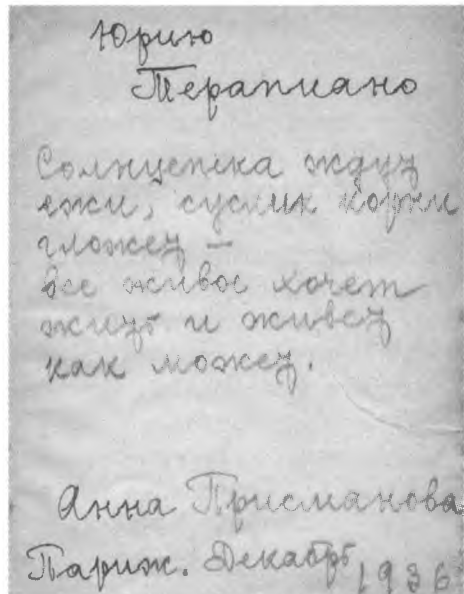 Юрию
Терапиано
Солнцепека ждут
ежи, суслик корни
гложет —
все живое хочет
жить и живет
как может.
Анна Присманова
Париж. Декабрь 1936